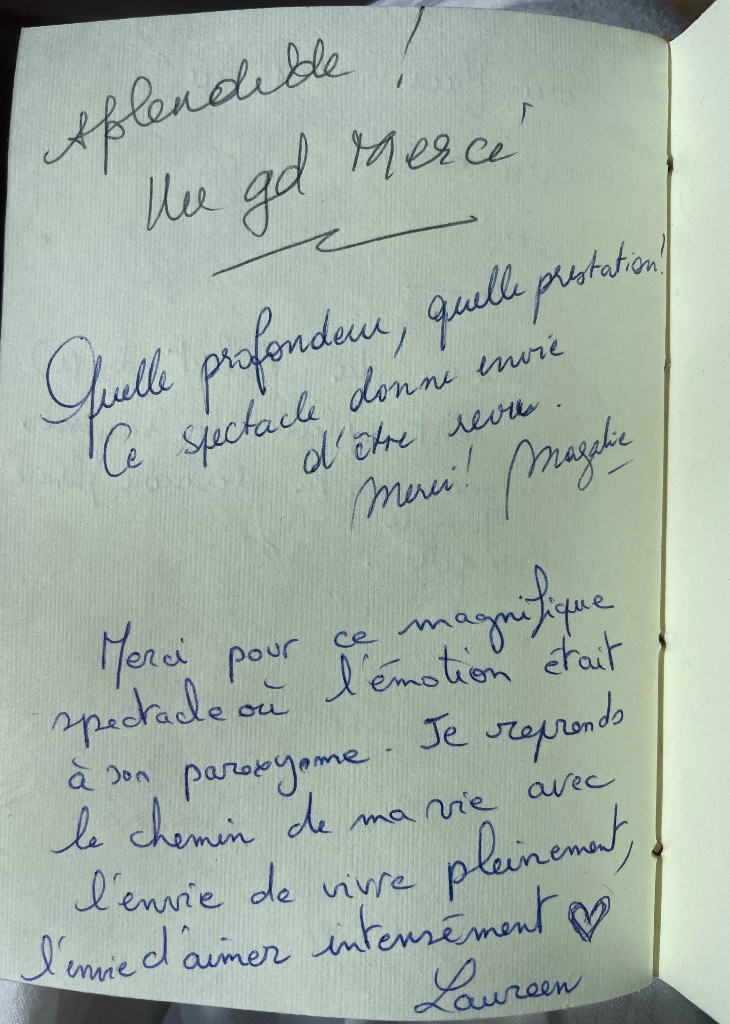 Splendide !
Un gd Merci
Quelle profondeur, quelle prestation!
Ce spectacle donne envie
d'être revu.
Merci! Magalie
Merci pour ce magnifique
spectacle où l'émotion était
à son paroxysme. Je reprends
le chemin de ma vie avec
l'envie de vivre pleinement,
l'envie d'aimer intensément ♡
Laureen